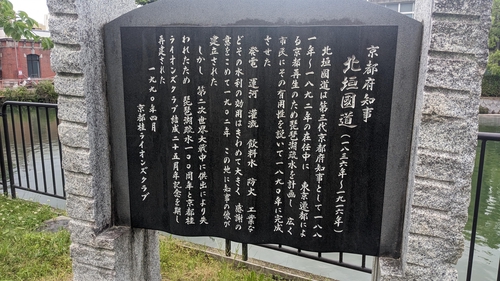 京都府知事
北垣國道(一八三六年〜一九一六年)
北垣國道は第三代京都府知事として一八八
一年〜一八九二年の在任中に 東京遷都によ
る京都再生のため琵琶湖疏水を計画し 広く
市民にその有用性を説いて一八九〇年に完成
させた
発電 運河 灌漑 飲料水 防火 工業な
どその水利の効用はきわめて大きく 感謝の
意をこめて一九〇二年 この地に知事の像が
建立された
しかし 第二次世界大戦中に供出により失
われたため 琵琶湖疏水一〇〇周年と京都桂
ライオンズクラブ結成二十五周年記念を期し
再建された
一九九〇年四月
京都桂ライオンズクラブ